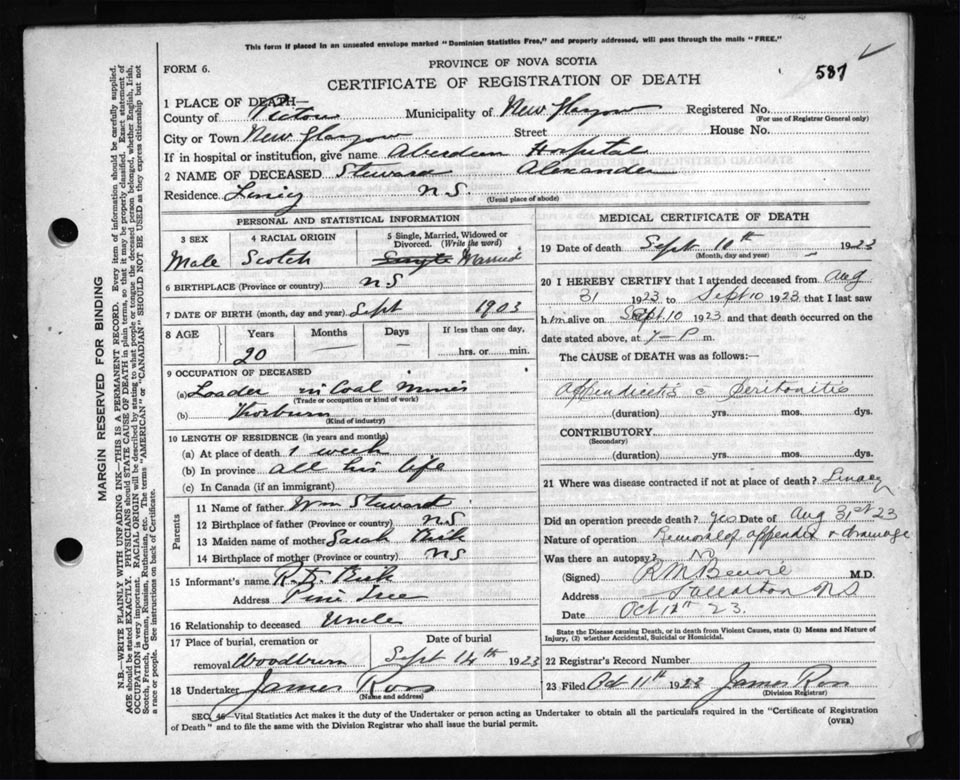 This form if placed in an unsealed envelope marked "Dominion Statistics Free," and properly addressed, will pass through the mails "FREE."
FORM 6.
PROVINCE OF NOVA SCOTIA
587
CERTIFICATE OF REGISTRATION OF DEATH
MARGIN RESERVED FOR BINDING
N.B.—WRITE PLAINLY WITH UNFADING INK—THIS IS A PERMANENT RECORD. Every item of information should be carefully supplied.
AGE should be stated EXACTLY. PHYSICIANS should STATE CAUSE OF DEATH in plain terms, so that it may be properly classified. Exact statement of
OCCUPATION is very important. RACIAL ORIGIN will be described by stating to what people or tongue the deceased person belonged, whether English, Irish,
Scotch, French, German, Russian, Ruthenian, etc. The terms "AMERICAN" or "CANADIAN" SHOULD NOT BE USED as they express citizenship but not
a race or people. See instructions on back of Certificate.
1 PLACE OF DEATH—
County of Pictou Municipality of New Glasgow Registered No.
(For use of Registrar General only)
City or Town New Glasgow Street House No.
If in hospital or institution, give name Aberdeen Hospital
2 NAME OF DECEASED Steward Alexander
Residence N.S.
(Usual place of abode)
PERSONAL AND STATISTICAL INFORMATION
3 SEX 4 RACIAL ORIGIN 5 Single, Married, Widowed or
Divorced. (Write the word)
Male Scotch Single Married
6 BIRTHPLACE (Province or country) N S
7 DATE OF BIRTH (month, day and year) Sept 1903
8 AGE Years Months Days If less than one day,
20 hrs. or min.
9 OCCUPATION OF DECEASED
(a) Loader in Coal Mines
(Trade or occupation or kind of work)
(b) Thorburn
(Kind of industry)
10 LENGTH OF RESIDENCE (in years and months)
(a) At place of death 1 week
(b) In province all his life
(c) In Canada (if an immigrant)
Parents
11 Name of father Wm Steward
12 Birthplace of father (Province or country) N S
13 Maiden name of mother Sarah
14 Birthplace of mother (Province or country) N S
15 Informant's name
Address Pine Tree
16 Relationship to deceased Uncle
17 Place of burial, cremation or Date of burial
removal Woodburn Sept 14th 1923
18 Undertaker James Ross
(Name and address)
MEDICAL CERTIFICATE OF DEATH
19 Date of death Sept 10th 1923
(Month, day and year)
20 I HEREBY CERTIFY that I attended deceased from Aug
31 1923 to Sept 10 1923 that I last saw
him alive on Sept 10 1923 and that death occurred on the
date stated above, at 7-P m.
The CAUSE OF DEATH was as follows:
Appendicitis c Peritonitis
(duration) yrs. mos. dys.
CONTRIBUTORY
(Secondary)
(duration) yrs. mos. dys.
21 Where was disease contracted if not at place of death?
Did an operation precede death? yes Date of Aug 31st 23
Nature of operation Removal of appendix & drainage
Was there an autopsy? No
(Signed) M.D.
Address N S
Date Oct 11th 23.
State the Disease causing Death, or in death from Violent Causes, state (1) Means and Nature of
Injury, (2) whether Accidental, Suicidal or Homicidal.
22 Registrar's Record Number
23 Filed Oct 11th 1923 James Ross
(Division Registrar)
SEC. 46—Vital Statistics Act makes it the duty of the Undertaker or person acting as Undertaker to obtain all the particulars required in the "Certificate of Registration
of Death" and to file the same with the Division Registrar who shall issue the burial permit.
(OVER)